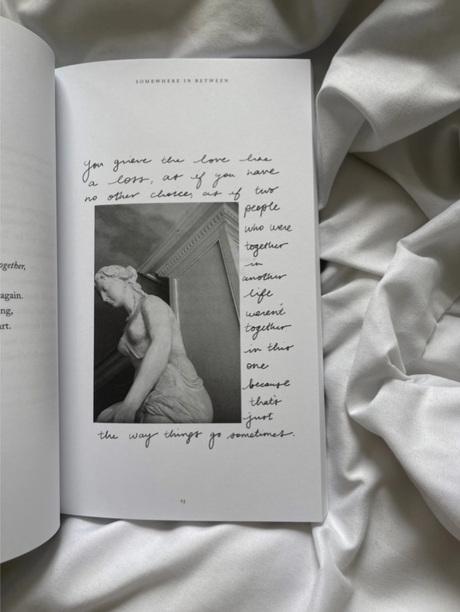 together,
again.
ng,
rt.
SOMEWHERE IN BETWEEN
you grieve the love like
a loss, as if you have
no other choice, as if two
people
who were
together
in
another
life
weren't
together
in this
one
because
that's
just
the way things go sometimes.